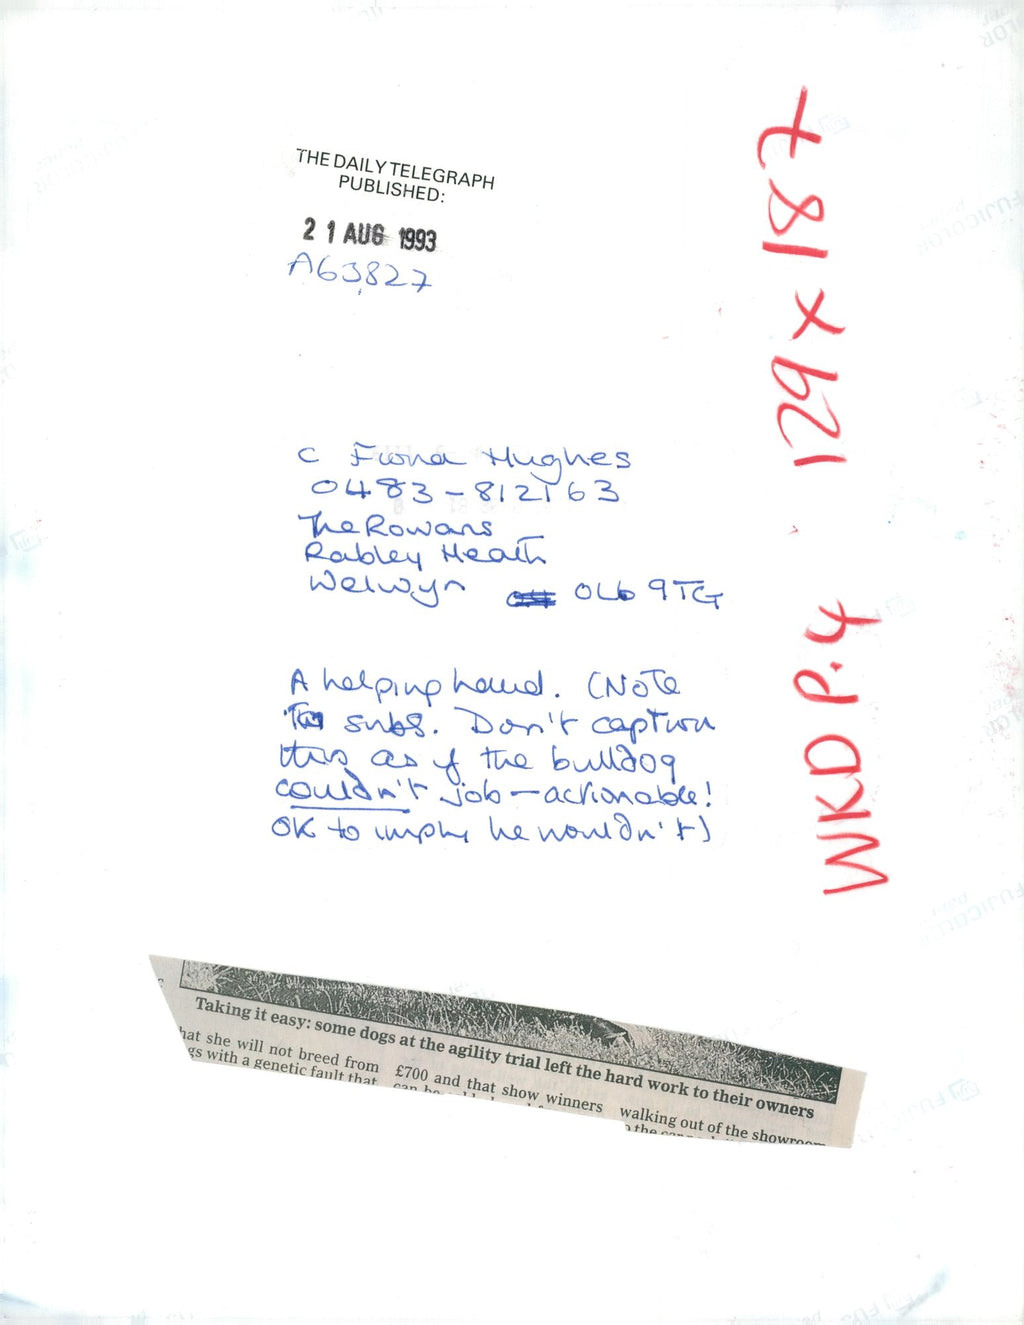 THE DAILY TELEGRAPH
PUBLISHED:
21 AUG 1993
A63827
C Fiona Hughes
0483-812163
The Rowans
Rabley Heath
Welwyn OL6 9TG
A helping hand. (Note
to subs. Don't caption
this as if the bulldog
couldn't job - actionable!
OK to imply he wouldn't)
t81 x 126
WKD P.4
Taking it easy: some dogs at the agility trial left the hard work to their owners
hat she will not breed from
gs with a genetic fault that
£700 and that show winners
can be
walking out of the showroom
FUJICOLOR
FUJICOLOR